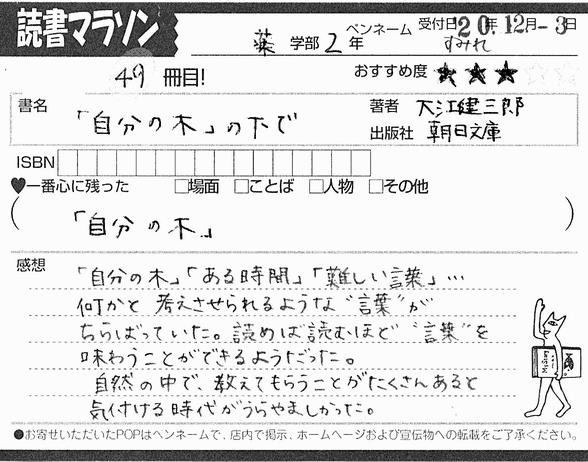 読書マラソン
薬 学部 2 年 ペンネーム すみれ 受付日 20年12月-3日
49 冊目! おすすめ度 ★★★☆
書名 「自分の木」の下で 著者 大江健三郎
出版社 朝日文庫
ISBN
♥一番心に残った □場面 □ことば □人物 □その他
(「自分の木」)
感想
「自分の木」「ある時間」「難しい言葉」…
何かと 考えさせられるような“言葉”が
ちらばっていた。読めば読むほど “言葉”を
味わうことができるようだった。
自然の中で、教えてもらうことがたくさんあると
気付ける時代がうらやましかった。
●お寄せいただいたPOPはペンネームで、店内で掲示、ホームページおよび宣伝物への転載をご了承ください。